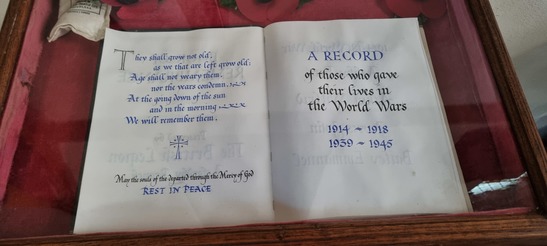 They shall grow not old,
as we that are left grow old;
Age shall not weary them,
nor the years condemn.
At the going down of the sun
and in the morning
We will remember them.
May the souls of the departed through the Mercy of God
REST IN PEACE
A RECORD
of those who gave
their lives in
the World Wars
1914 - 1918
1939 - 1945